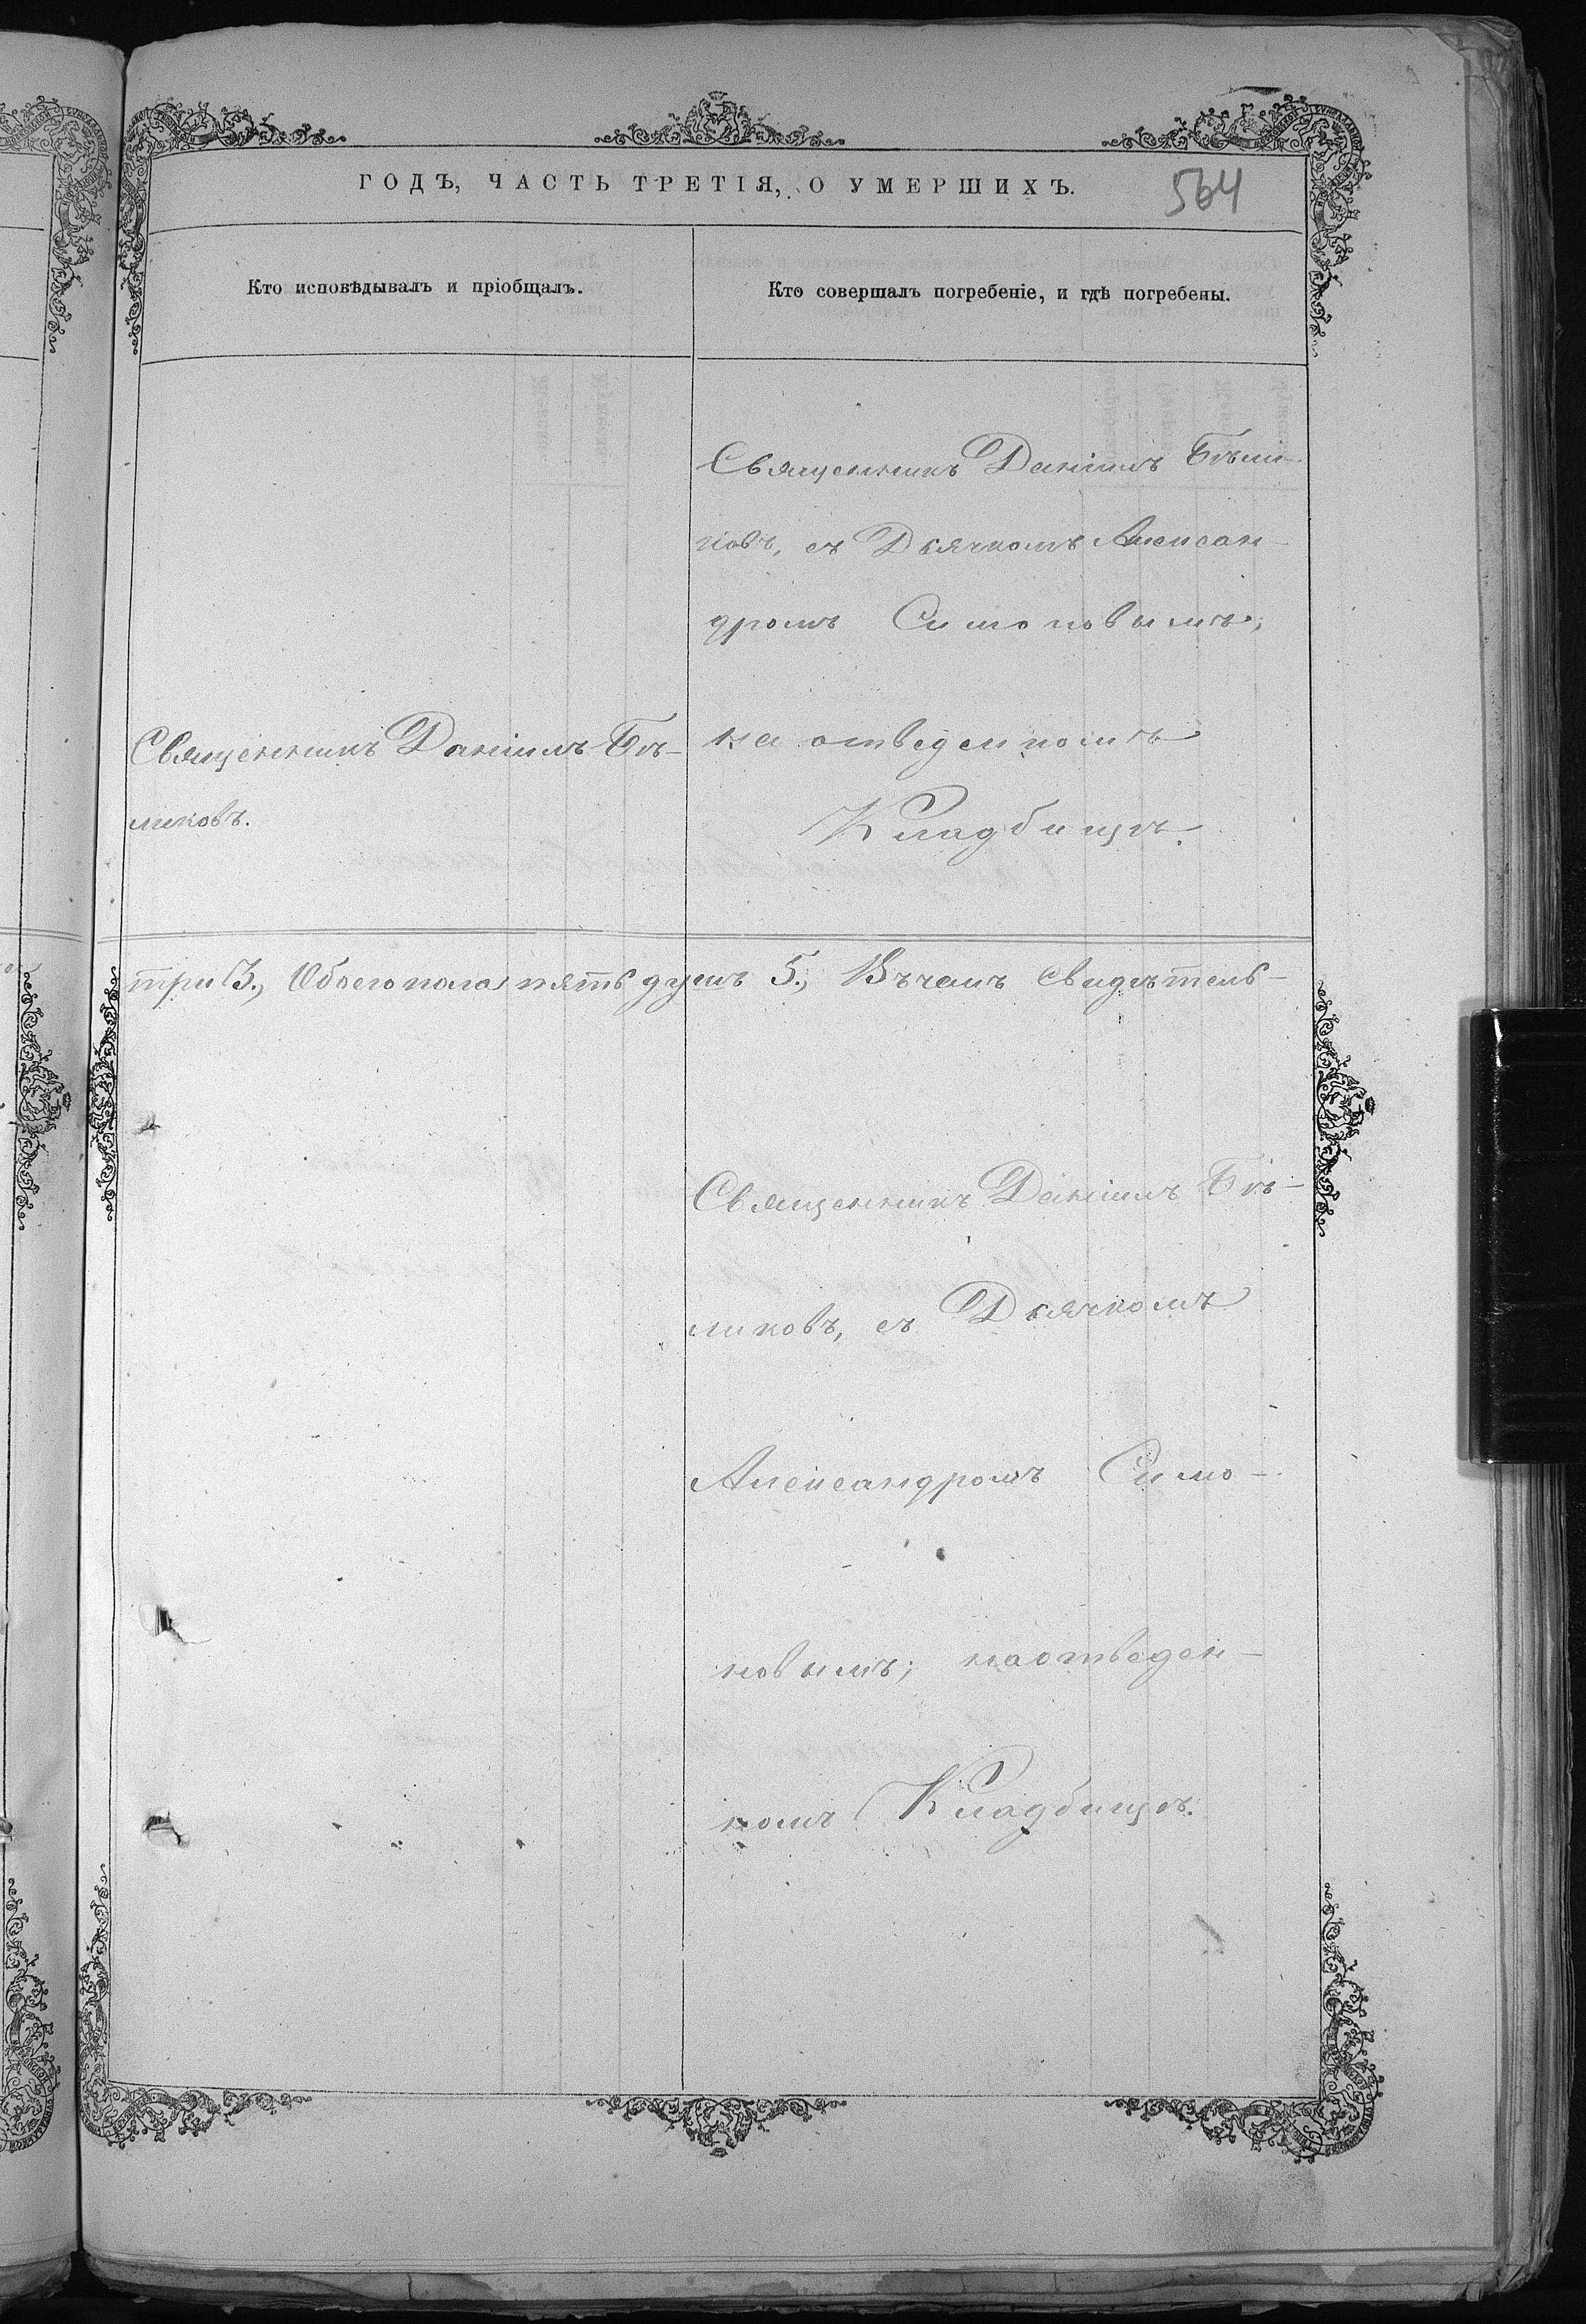 ГОДЪ, ЧАСТЬ ТРЕТІЯ, О УМЕРШИХЪ.
564
Кто исповѣдывалъ и пріобщалъ.
Кто совершалъ погребеніе, и гдѣ погребены.
Священникъ Даніилъ Бѣли-
ковъ, съ Дьячкомъ Алексан-
дромъ Симоновымъ;
на отведенномъ
Кладбищѣ.
Священникъ Даніилъ Бѣ-
ликовъ.
три 3., Обоего пола пять душъ 5., Въ чемъ свидѣтель-
Священникъ Даніилъ Бѣ-
ликовъ, съ Дьячкомъ
Александромъ Симо-
новымъ; на отведен-
номъ Кладбищѣ.